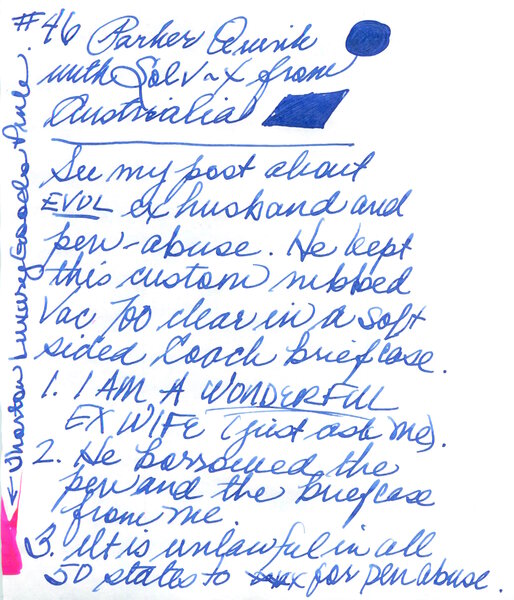 #46 Parker Quink
with Solv~X from
Australia
See my post about
EVUL ex husband and
pen-abuse. He kept
this custom nibbed
Vac 700 clear in a soft
sided Coach briefcase.
1. I AM A WONDERFUL
EX WIFE (just ask me).
2. He borrowed the
pen and the briefcase
from me.
3. It is unlawful in all
50 states to for pen abuse.
← Wharton Luxury Goods Pink.